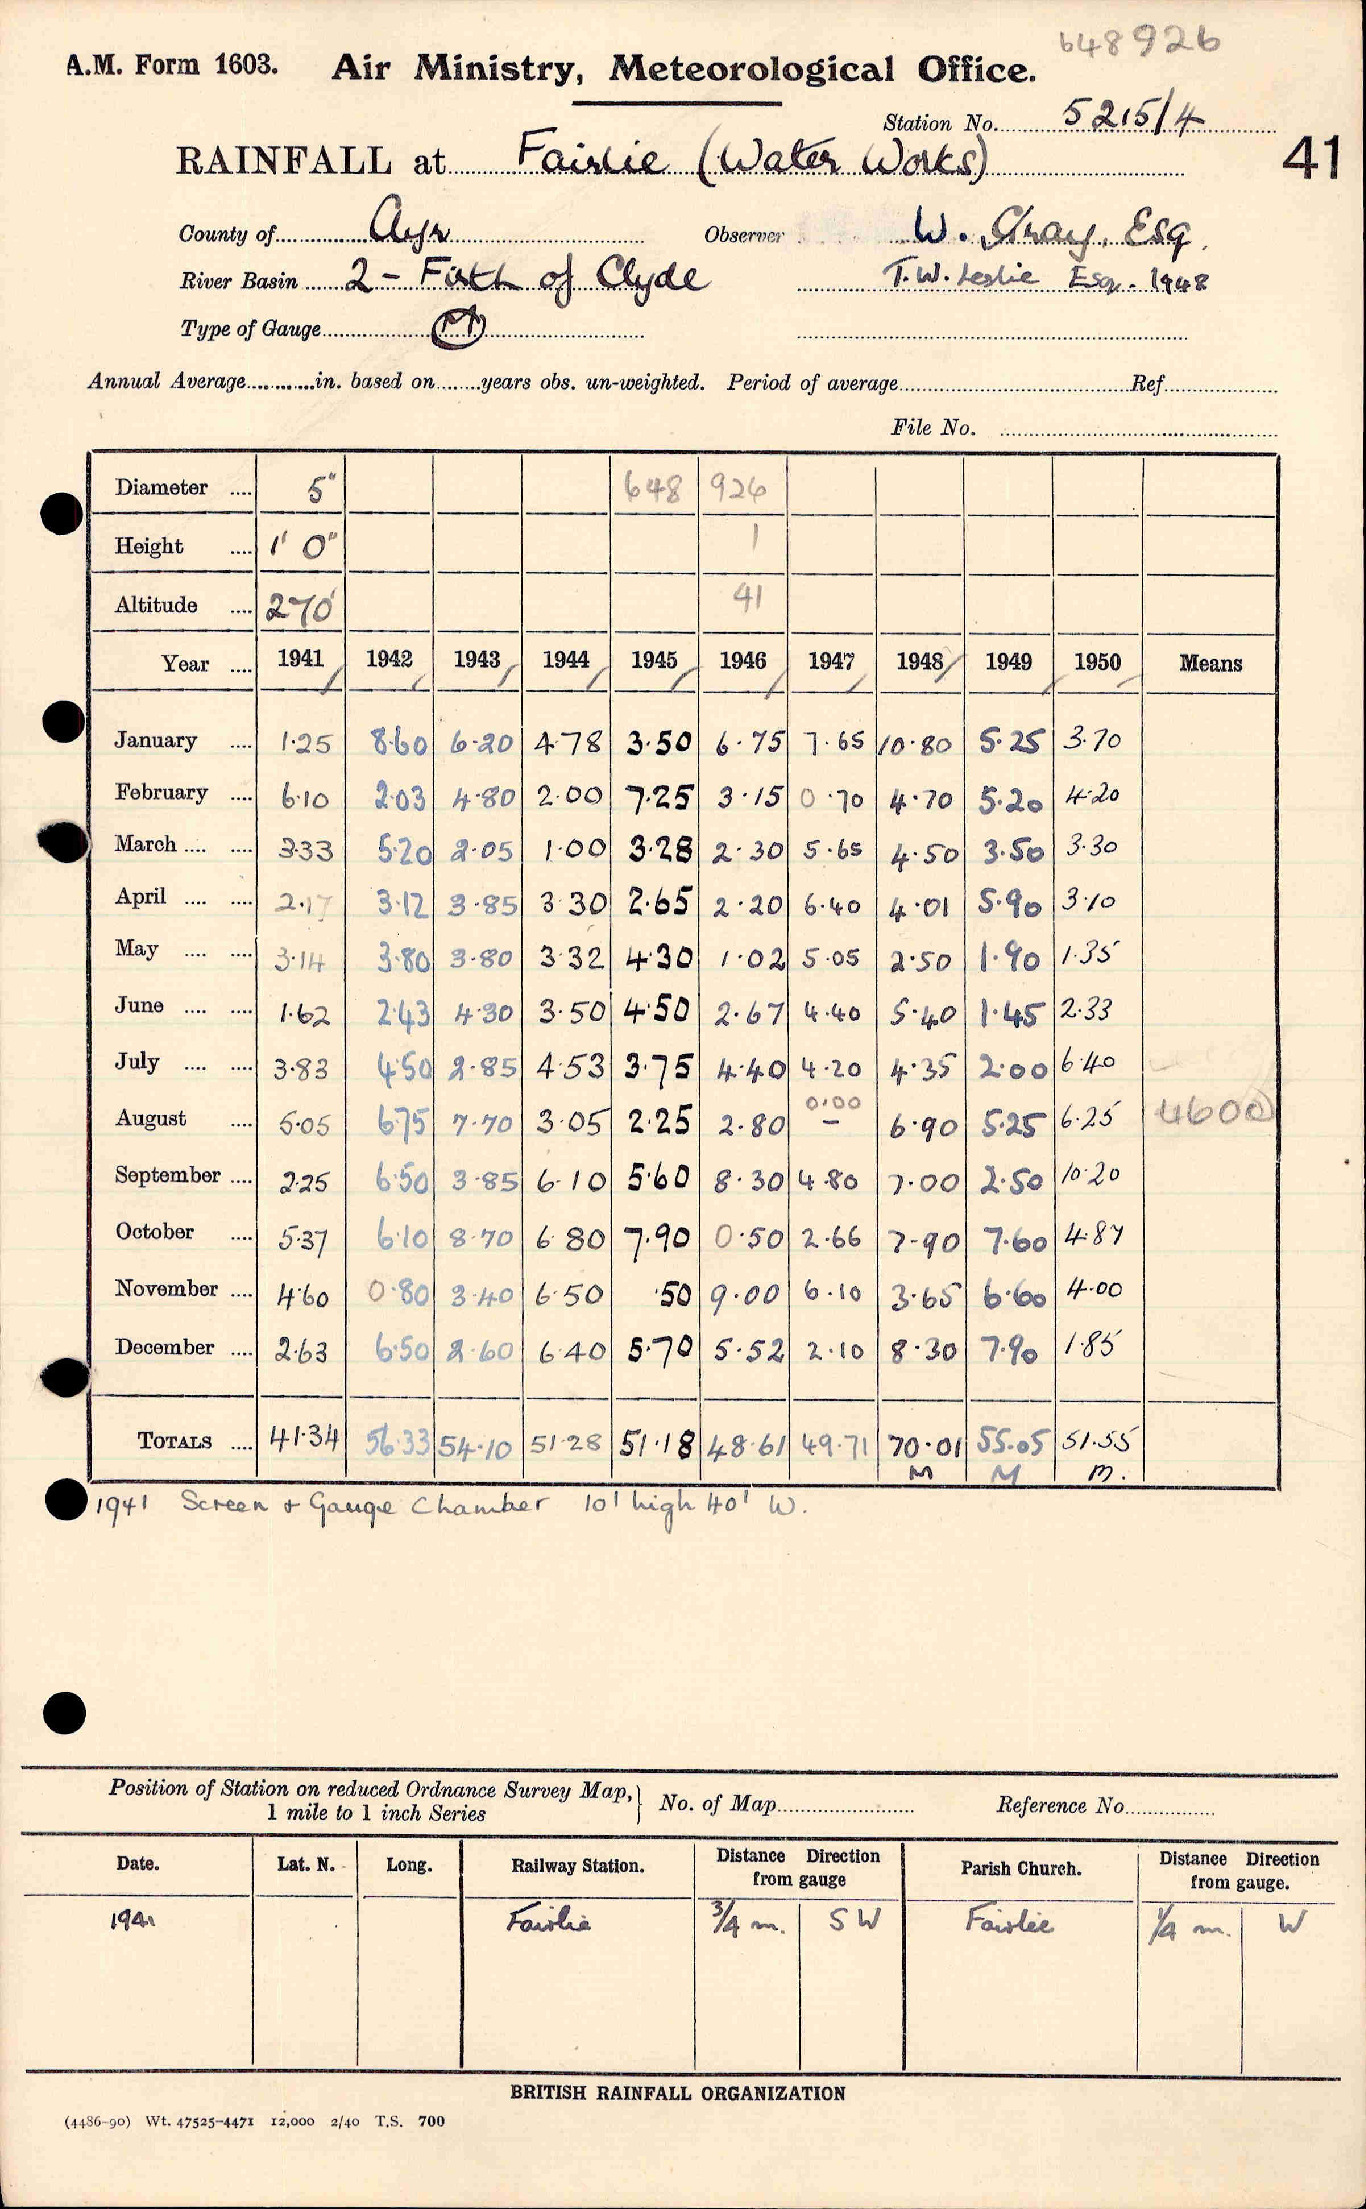 648926
A.M. Form 1603. Air Ministry, Meteorological Office.
Station No. 5215/4
41
RAINFALL at Fairlie (Water Works)
County of Ayr Observer W. Gray, Esq.
River Basin 2 - Firth of Clyde T.W. Leslie Esq. 1948
Type of Gauge M
Annual Average in. based on years obs. un-weighted. Period of average Ref.
File No.
Diameter .... 5" 648 926
Height .... 1' 0" 1
Altitude .... 270' 41
Year .... 1941 1942 1943 1944 1945 1946 1947 1948 1949 1950 Means
January .... 1.25 8.60 6.20 4.78 3.50 6.75 7.65 10.80 5.25 3.70
February .... 6.10 2.03 4.80 2.00 7.25 3.15 0.70 4.70 5.20 4.20
March .... .... 3.33 5.20 2.05 1.00 3.28 2.30 5.65 4.50 3.50 3.30
April .... .... 2.17 3.12 3.85 3.30 2.65 2.20 6.40 4.01 5.90 3.10
May .... .... 3.14 3.80 3.80 3.32 4.30 1.02 5.05 2.50 1.90 1.35
June .... .... 1.62 2.43 4.30 3.50 4.50 2.67 4.40 5.40 1.45 2.33
July .... .... 3.83 4.50 2.85 4.53 3.75 4.40 4.20 4.35 2.00 6.40
0.00
August .... 5.05 6.75 7.70 3.05 2.25 2.80 – 6.90 5.25 6.25 4600
September .... 2.25 6.50 3.85 6.10 5.60 8.30 4.80 7.00 2.50 10.20
October .... 5.37 6.10 8.70 6.80 7.90 0.50 2.66 7.90 7.60 4.87
November .... 4.60 0.80 3.40 6.50 .50 9.00 6.10 3.65 6.60 4.00
December .... 2.63 6.50 2.60 6.40 5.70 5.52 2.10 8.30 7.90 1.85
TOTALS .... 41.34 56.33 54.10 51.28 51.18 48.61 49.71 70.01 55.05 51.55
M M m.
1941 Screen + Gauge Chamber 10' high 40' W.
Position of Station on reduced Ordnance Survey Map,
1 mile to 1 inch Series
No. of Map Reference No.
Date. Lat. N. Long. Railway Station. Distance from gauge Direction Parish Church. Distance from gauge. Direction
1941 Fairlie 3/4 m. SW Fairlie 1/4 m. W
BRITISH RAINFALL ORGANIZATION
(4486-90) Wt. 47525-4471 12,000 2/40 T.S. 700